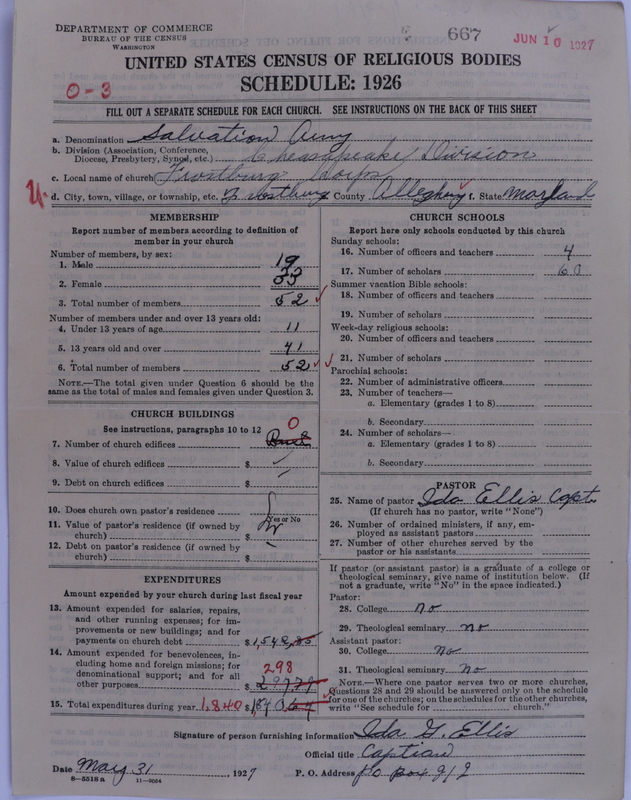 DEPARTMENT OF COMMERCE
BUREAU OF THE CENSUS
WASHINGTON
667
JUN 10 1927
UNITED STATES CENSUS OF RELIGIOUS BODIES
SCHEDULE: 1926
0-3
FILL OUT A SEPARATE SCHEDULE FOR EACH CHURCH. SEE INSTRUCTIONS ON THE BACK OF THIS SHEET
a. Denomination Salvation Army
b. Division (Association, Conference, Diocese, Presbytery, Synod, etc.) Cheasapeake Division
c. Local name of church Frostburg Corps
d. City, town, village, or township, etc. Frostburg County Alleghany f. State Maryland
MEMBERSHIP
Report number of members according to definition of member in your church
Number of members, by sex:
1. Male 19
2. Female 33
3. Total number of members 52
Number of members under and over 13 years old:
4. Under 13 years of age 11
5. 13 years old and over 41
6. Total number of members 52
NOTE.—The total given under Question 6 should be the same as the total of males and females given under Question 3.
CHURCH BUILDINGS
See instructions, paragraphs 10 to 12
7. Number of church edifices 0
8. Value of church edifices $
9. Debt on church edifices $
10. Does church own pastor's residence
Yes or No
11. Value of pastor's residence (if owned by church) $
12. Debt on pastor's residence (if owned by church) $
EXPENDITURES
Amount expended by your church during last fiscal year
13. Amount expended for salaries, repairs, and other running expenses; for improvements or new buildings; and for payments on church debt $1,542.85
14. Amount expended for benevolences, including home and foreign missions; for denominational support; and for all other purposes $ 297.79 298
15. Total expenditures during year 1,840 $1,840.64
CHURCH SCHOOLS
Report here only schools conducted by this church
Sunday schools:
16. Number of officers and teachers 4
17. Number of scholars 60
Summer vacation Bible schools:
18. Number of officers and teachers
19. Number of scholars
Week-day religious schools:
20. Number of officers and teachers
21. Number of scholars
Parochial schools:
22. Number of administrative officers
23. Number of teachers—
a. Elementary (grades 1 to 8)
b. Secondary
24. Number of scholars—
a. Elementary (grades 1 to 8)
b. Secondary
PASTOR
25. Name of pastor Ida Ellis Capt.
(If church has no pastor, write "None")
26. Number of ordained ministers, if any, employed as assistant pastors
27. Number of other churches served by the pastor or his assistants
If pastor (or assistant pastor) is a graduate of a college or theological seminary, give name of institution below. (If not a graduate, write "No" in the space indicated.)
Pastor:
28. College no
29. Theological seminary no
Assistant pastor:
30. College no
31. Theological seminary no
NOTE.—Where one pastor serves two or more churches, Questions 28 and 29 should be answered only on the schedule for one of the churches; on the schedules for the other churches, write "See schedule for church."
Signature of person furnishing information Ida G. Ellis
Official title Captian
Date May 31, 1927 P. O. Address PO Box 212
8-5518a 11-9034